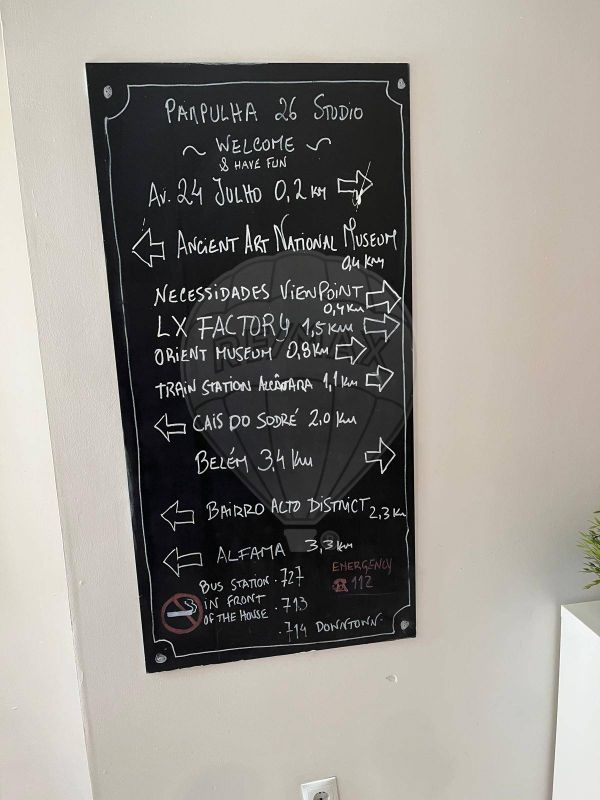 PAMPULHA 26 STUDIO
~ WELCOME ~
& HAVE FUN
AV. 24 JULHO 0,2 KM
ANCIENT ART NATIONAL MUSEUM
0,4 KM
NECESSIDADES VIENPOINT
0,4 KM
LX FACTORY 1,5 KM
ORIENT MUSEUM 0,8 KM
TRAIN STATION ALCÂNTARA 1,1 KM
CAIS DO SODRÉ 2,0 KM
BELÉM 3,4 KM
BAIRRO ALTO DISTRICT 2,3 KM
ALFAMA 3,3 KM
EMERGENCY
☎ 112
BUS STATION · 727
IN FRONT · 713
OF THE HOUSE
· 714 DOWNTOWN ·
RE/MAX